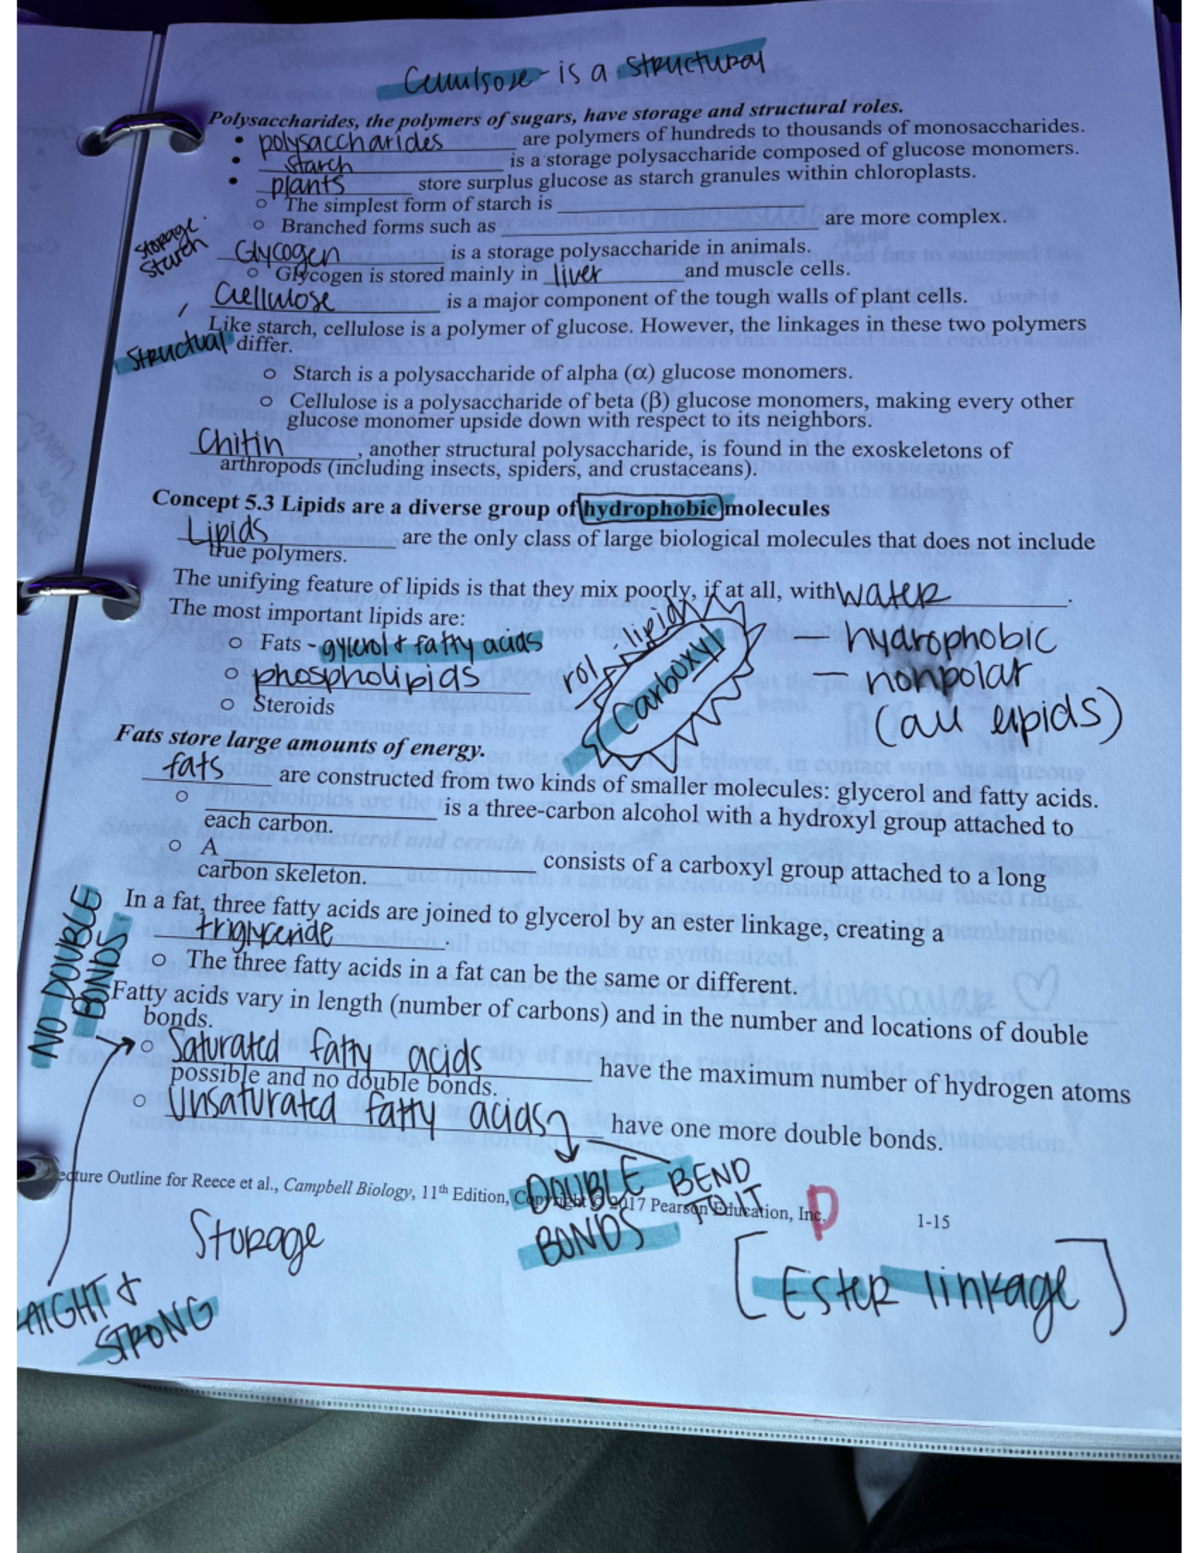 Cellulsose - is a structural
Polysaccharides, the polymers of sugars, have storage and structural roles.
• polysaccharides are polymers of hundreds to thousands of monosaccharides.
• starch is a storage polysaccharide composed of glucose monomers.
• plants store surplus glucose as starch granules within chloroplasts.
o The simplest form of starch is
o Branched forms such as are more complex.
storage
starch
Glycogen is a storage polysaccharide in animals.
o Glycogen is stored mainly in liver and muscle cells.
Cellulose is a major component of the tough walls of plant cells.
Like starch, cellulose is a polymer of glucose. However, the linkages in these two polymers
structual differ.
o Starch is a polysaccharide of alpha (α) glucose monomers.
o Cellulose is a polysaccharide of beta (β) glucose monomers, making every other
glucose monomer upside down with respect to its neighbors.
Chitin, another structural polysaccharide, is found in the exoskeletons of
arthropods (including insects, spiders, and crustaceans).
Concept 5.3 Lipids are a diverse group of hydrophobic molecules
Lipids are the only class of large biological molecules that does not include
true polymers.
The unifying feature of lipids is that they mix poorly, if at all, with water.
The most important lipids are:
o Fats - gylerol & fatty acids
o phospholipids
o Steroids
rol lipids
Carboxyl
— hydrophobic
— nonpolar
(all lipids)
Fats store large amounts of energy.
fats are constructed from two kinds of smaller molecules: glycerol and fatty acids.
o is a three-carbon alcohol with a hydroxyl group attached to
each carbon.
o A consists of a carboxyl group attached to a long
carbon skeleton.
In a fat, three fatty acids are joined to glycerol by an ester linkage, creating a
triglyceride.
o The three fatty acids in a fat can be the same or different.
NO DOUBLE
BONDS
Fatty acids vary in length (number of carbons) and in the number and locations of double
bonds.
o Saturated fatty acids have the maximum number of hydrogen atoms
possible and no double bonds.
o Unsaturated fatty acids have one more double bonds.
DOUBLE BEND
BONDS TO IT
ecture Outline for Reece et al., Campbell Biology, 11th Edition, Copyright © 2017 Pearson Education, Inc.
P
1-15
Storage
[Ester linkage]
AIGHT &
STRONG